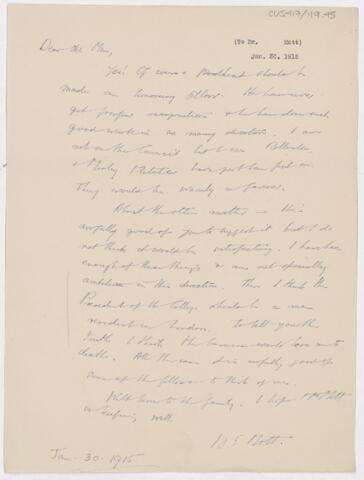 CUS417/119.45
(To Dr. Mott)
Jan. 30, 1915
Dear old Man,
Yes! Of course Moorhead should be
made an honorary fellow. He has never
got proper recognition & he has done such
good work in so many directions. I am
not on the Council but I see
& Morley Fletcher have just been put on
They would be warmly in favour.
About the other matter - It is
awfully good of you to suggest it but I do
not think it would be satisfactory. I have had
enough of these things & am not specially
ambitious in this direction. Then I think the
President of the College should be a man
resident in London. To tell you the
truth I think the business would bore me to
death. All the same it is awfully good of
some of the fellows to think of me.
With love to the family. I hope
is keeping well
Jan - 30 - 1915